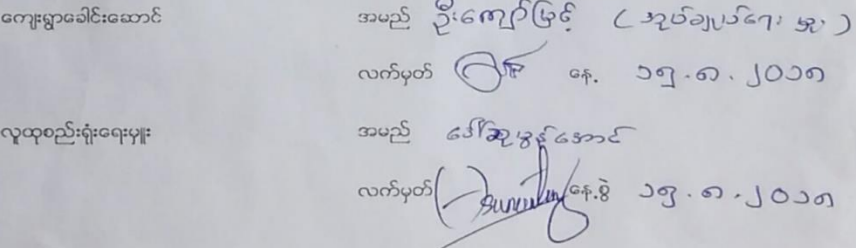 ကျေးရွာခေါင်းဆောင် အမည် ဦးကျော်မြင့် (အုပ်ချုပ်ရေး မှူး)
လက်မှတ် နေ့. ၁၅.၈.၂၀၁၈
လူထုစည်းရုံးရေးမှူး အမည် ဒေါ်ဆုမွန်အောင်
လက်မှတ် နေ့စွဲ ၁၅.၈.၂၀၁၈